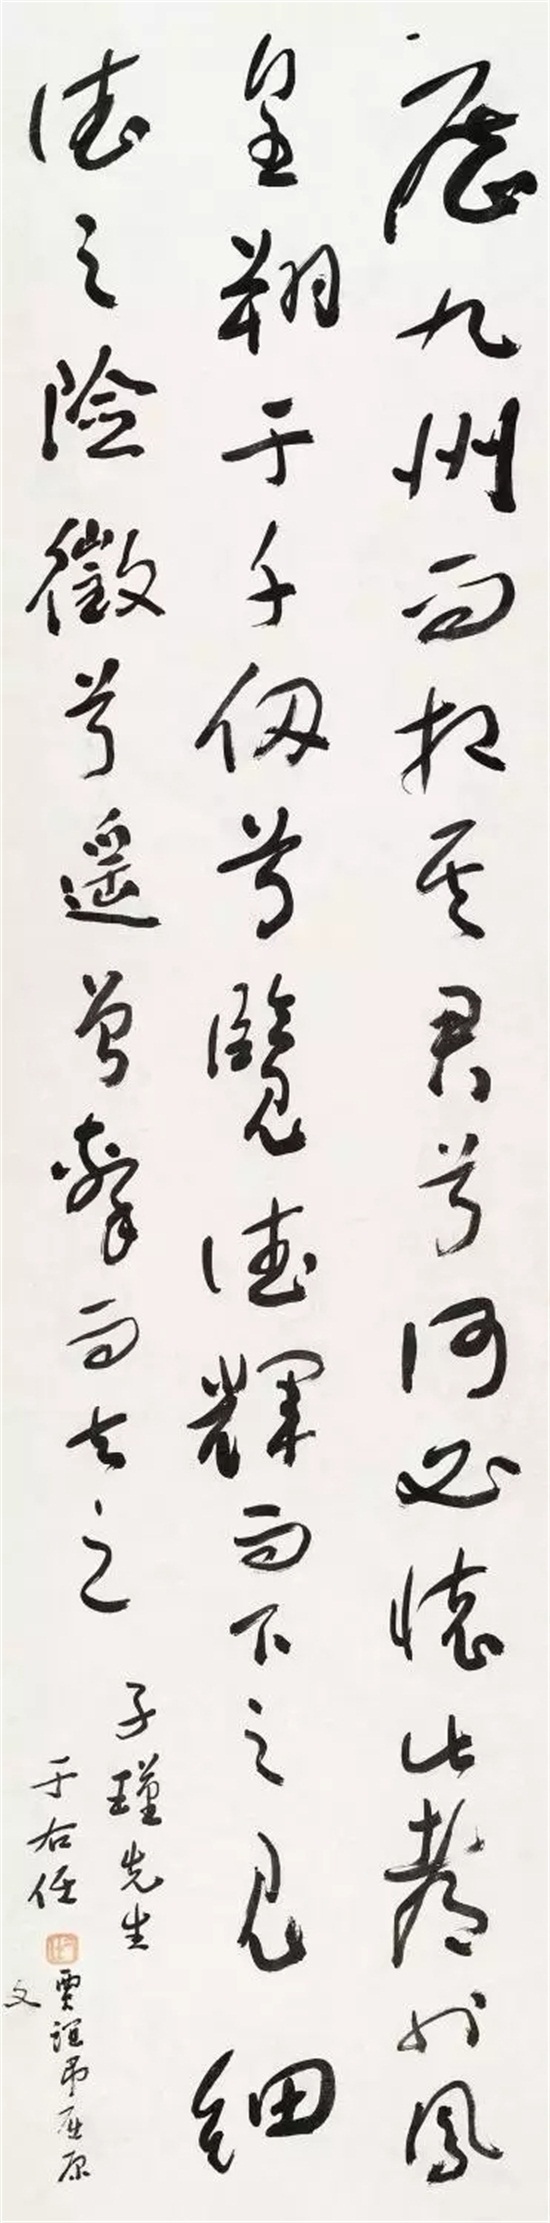 歷九州而相其君兮何必懷此都也鳳
皇翔于千仞兮覽德輝而下之見細
德之險徵兮遙曾擊而去之
子瑾先生
于右任
賈誼吊屈原
文